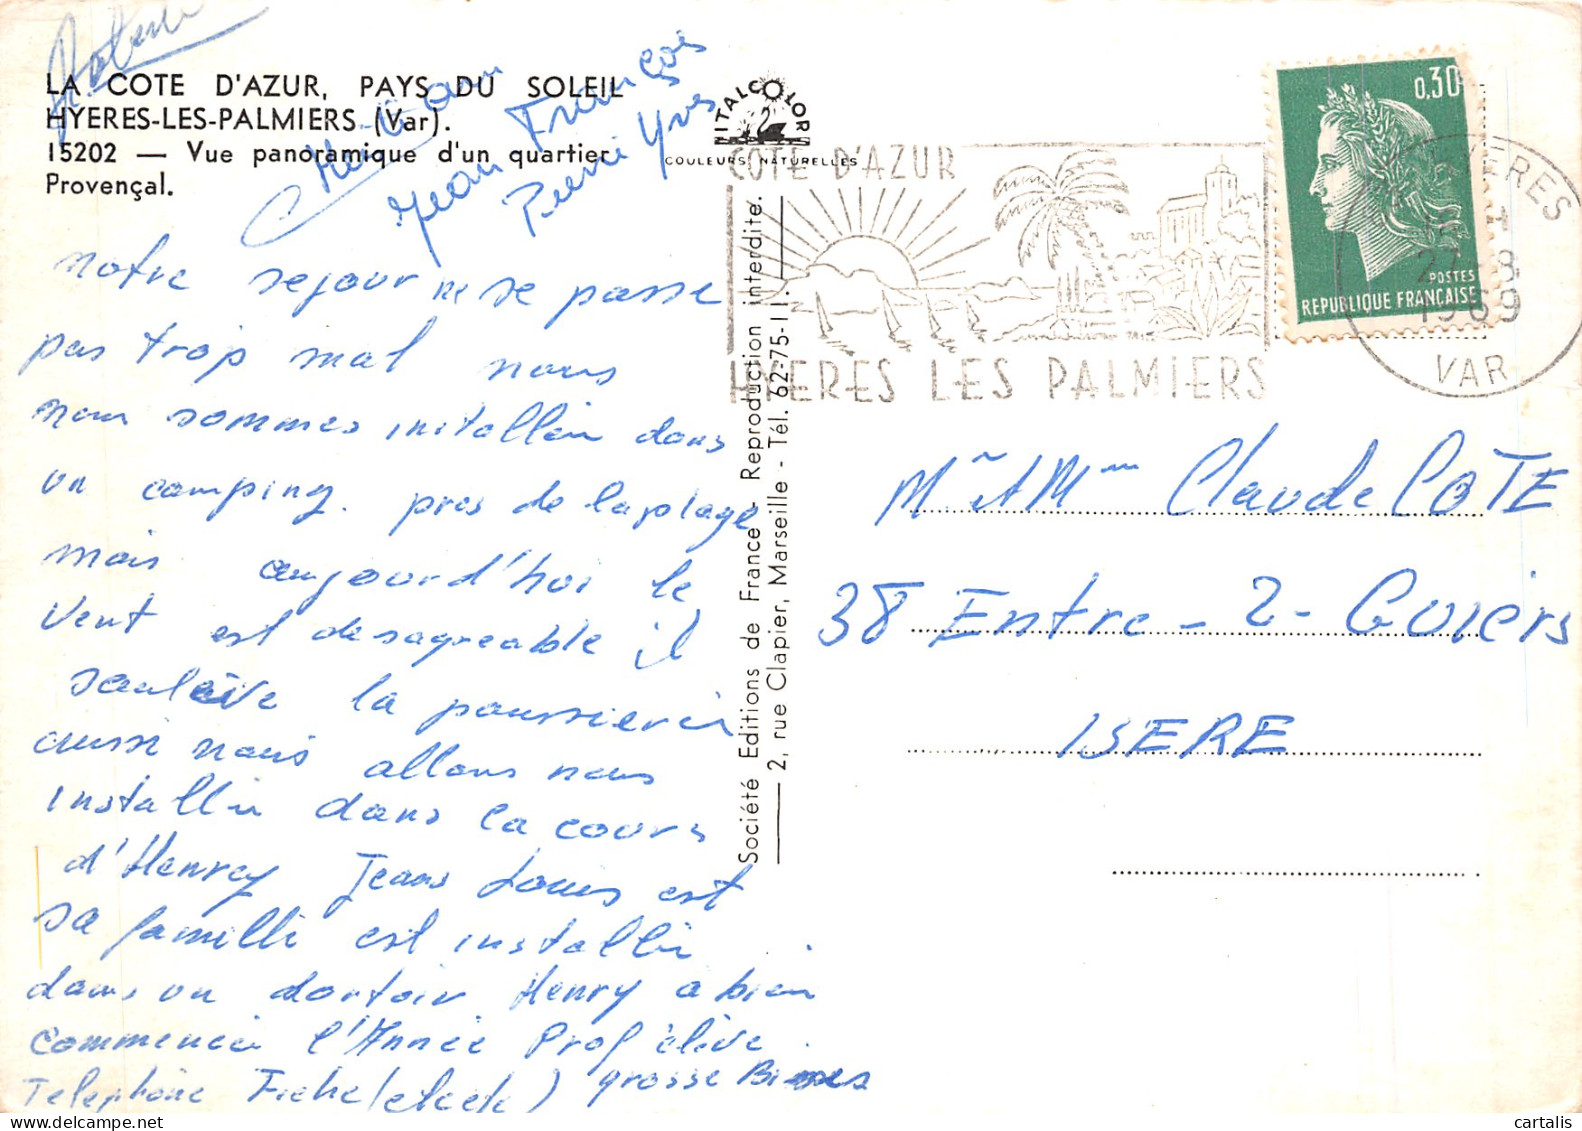 LA COTE D'AZUR, PAYS DU SOLEIL
HYERES-LES-PALMIERS (Var).
15202 — Vue panoramique d'un quartier
Provençal.
Jean François
Pierre Yves
notre sejour ne se passe
pas trop mal nous
nous sommes installer dans
un camping. pres de la plage
mais aujourd'hui le
vent est desagreable il
soulève la poussierer
aussi nous allons nous
installer dans la cours
d'Henry Jean Louis est
sa famille est installer
dans un dortoir Henry a bien
commencer l'Année Prof élève
Telephone Fiche (etcetc) grosse Bises
ITALCOLOR
COULEURS NATURELLES
Société Editions de France - Reproduction interdite.
2, rue Clapier, Marseille - Tél. 62-75-11.
COTE D'AZUR
HYERES LES PALMIERS
0,30
POSTES
REPUBLIQUE FRANÇAISE
HYERES
27-8
1969
VAR
Mr et Mme Claude COTE
38 Entre-2-Guiers
ISERE
cartalis